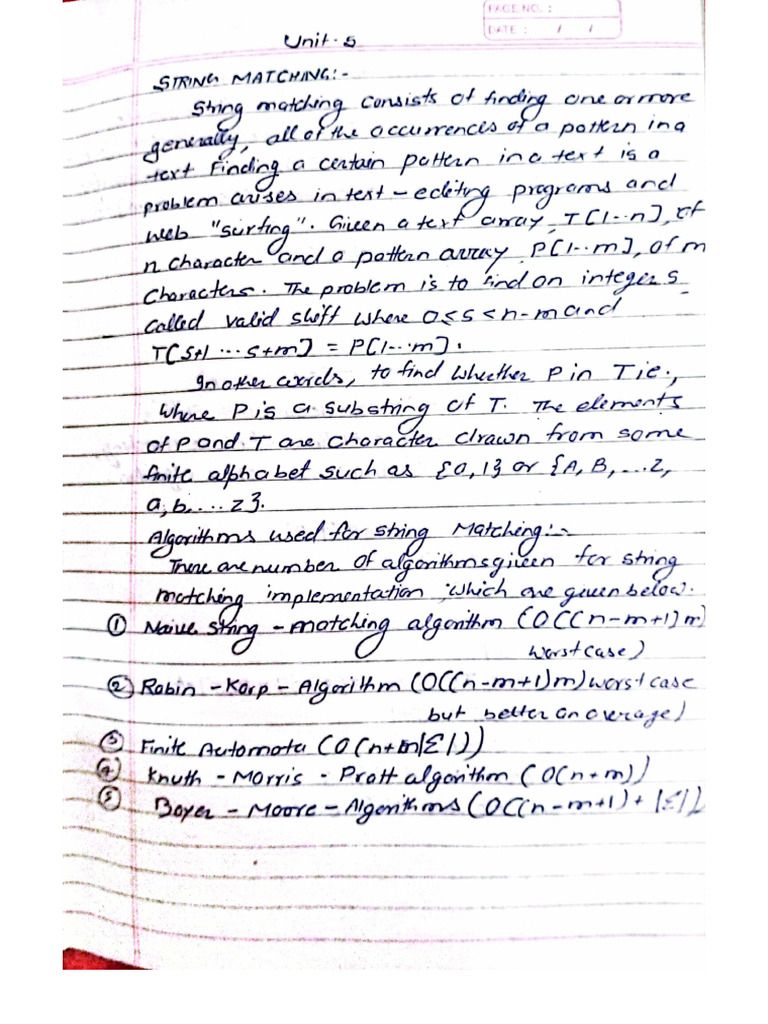 PAGE NO. :
DATE : / /
Unit - 5
STRING MATCHING:-
String matching consists of finding one or more
generally, all of the occurrences of a pattern in a
text Finding a certain pattern in a text is a
problem arises in text - editing programs and
web "surfing". Given a text array, T[1--n], of
n character and a pattern array, P[1--m], of m
characters. The problem is to find an integer s
called valid shift where 0≤s<n-m and
T[s+1 ... s+m] = P[1--m].
In other words, to find whether P in T ie.,
where P is a substring of T. The elements
of P and T are character drawn from some
finite alphabet such as {0,1} or {A, B, ... Z,
a, b, ... z}.
Algorithms used for string Matching:-
There are number of algorithms given for string
matching implementation which are given below.
① Naive string - matching algorithm (O((n-m+1)m)
worst case)
② Rabin - Karp - Algorithm (O((n-m+1)m) worst case
but better on average)
③ Finite Automata (O(n+m|Σ|))
④ Knuth - Morris - Pratt algorithm (O(n+m))
⑤ Boyer - Moore - Algorithms (O((n-m+1) + |Σ|)